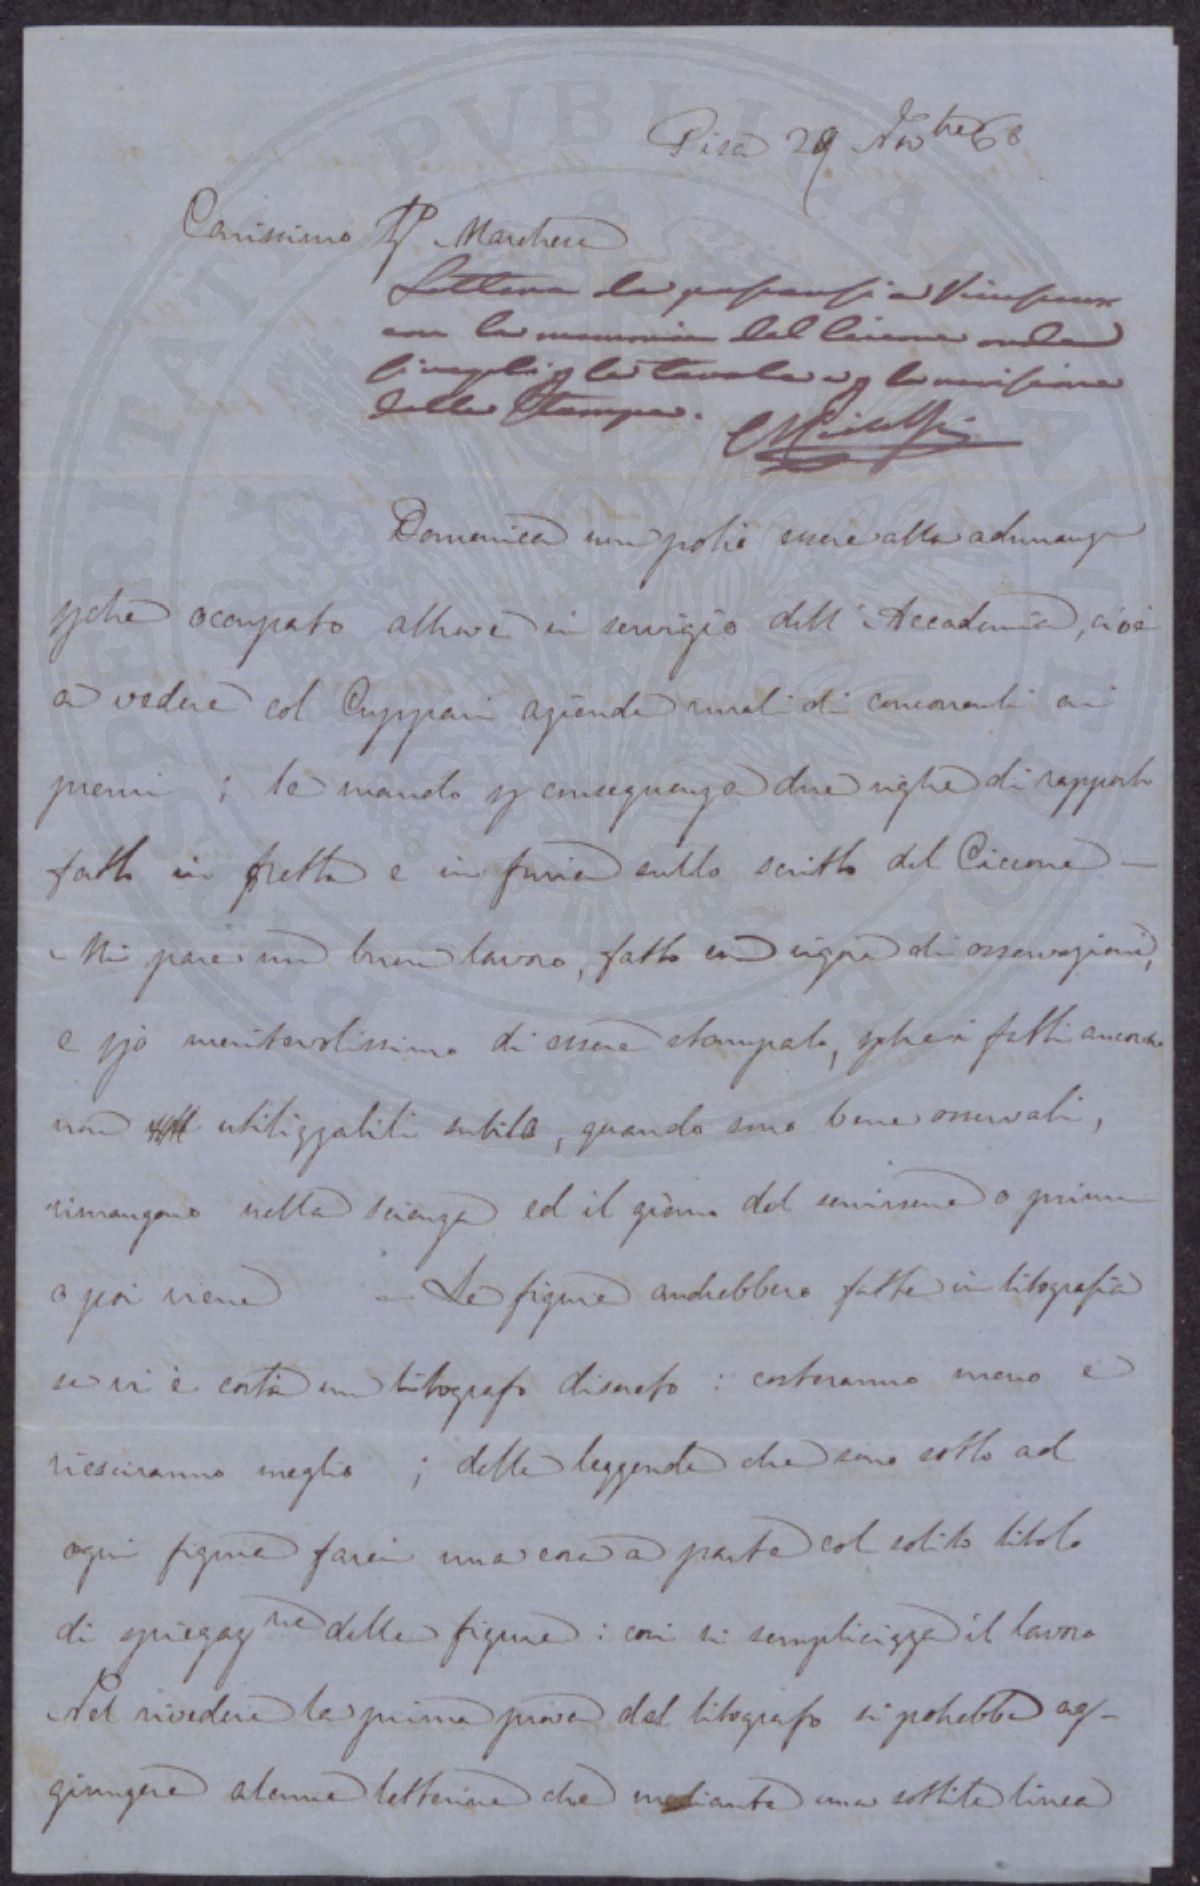 Pisa 29 Nov^bre 68
Carissimo Sr Marchese
Lettera da passarsi a Vieusseux
con la memoria del Ciccone onde
la tavola e la revisione
della stampa.
CRidolfi
Domenica non potei essere alla adunanza
pche occupato altrove in servigio dell'Accademia, cioè
a vedere col Cuppari aziende rurali di concorrenti ai
premi ; le mando p conseguenza due righe di rapporto
fatto in fretta e in furia sullo scritto del Ciccone —
Mi pare un buon lavoro, fatto con vigore di osservazioni,
e pciò meritevolissimo di essere stampato, pche i fatti ancorche
non utilizzabili subito, quando sono bene osservati,
rimangono nella scienza ed il giorno del servirsene o prima
o poi viene — Le figure andrebbero fatte in litografia
se vi è costà un litografo discreto : costeranno meno e
riesciranno meglio ; delle leggende che sono sotto ad
ogni figura farei una cosa a parte col solito titolo
di spiegaz^ne delle figure : così si semplicizza il lavoro
Nel rivedere la prima prova del litografo si potrebbe ag-
giungere alcune letterine che mediante una sottile linea
PROSPERITATI PUBLICAE AUGENDAE